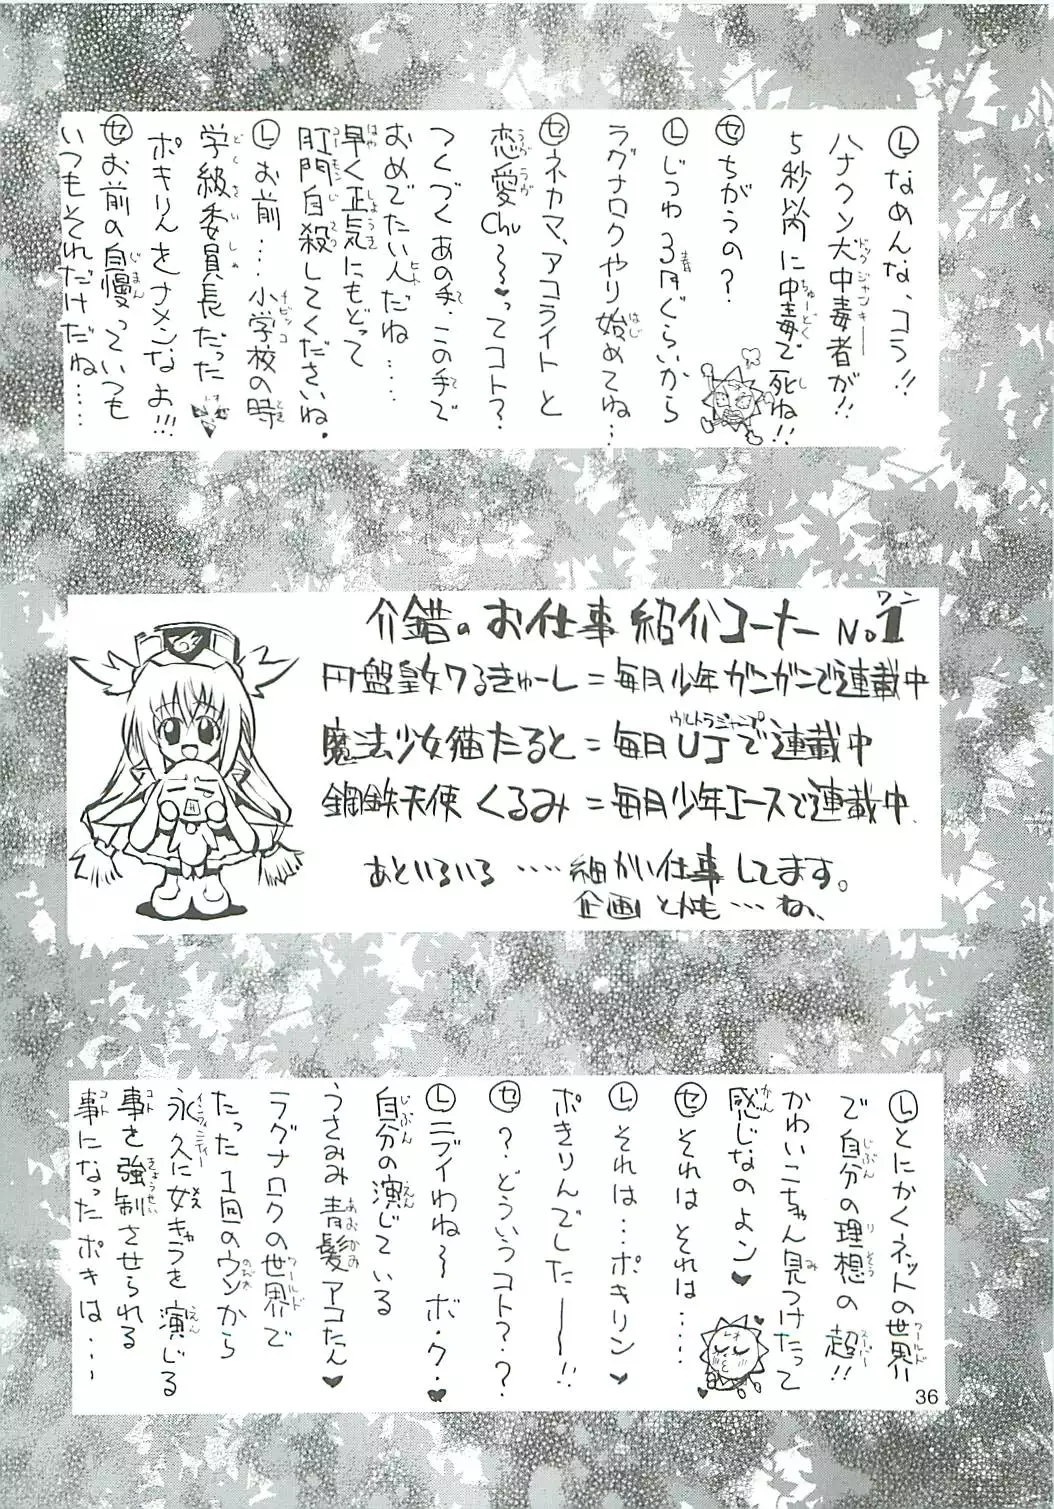 Ⓛなめんな、コラ!!
ハナクソ犬中毒者が!!
5秒以内に中毒で死ね!!
セちがうの?
Ⓛじつわ3月ぐらいから
ラグナロクやり始めてね…
セネカマ、アコライトと
恋愛Chu〜♥ってコト?
つくづくあの手、この手で
おめでたい人だね……
早く正気にもどって
肛門自殺してくださいね。
Ⓛお前…小学校の時
学級委員長だった
ポキりんをナメンなよ!!!
セお前の自慢っていつも
いつもそれだけだね……
介錯のお仕事紹介コーナーNo.1
円盤皇女ワるきゅーレ=毎月少年ガンガンで連載中
魔法少女猫たると=毎月UJで連載中
鋼鉄天使くるみ=毎月少年エースで連載中.
あといろいろ……細かい仕事してます。
企画とかも…ね、
Ⓛとにかくネットの世界
で自分の理想の超!!
かわいこちゃん見つけたって
感じなのよン♥
セそれはそれは……
Ⓛそれは…ポキリン♥
ポきりんでした——!!
セ?どういうコト??
Ⓛニブイわね〜ボ・ク・♥
自分の演じている
うさみみ青髪アコたん♥
ラグナロクの世界で
たった1回のウンから
永久に女キャラを演じる
事を強制させられる
事になったポキは……
36